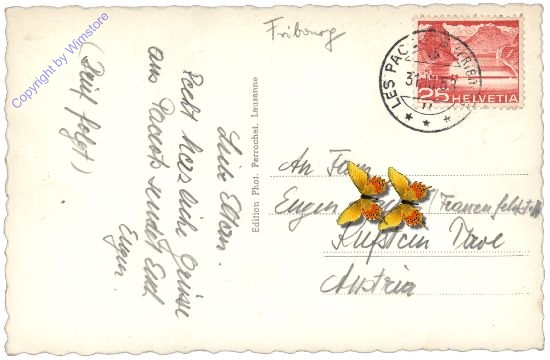 Copyright by Wimstore
Fribourg
LES PAC
25 HELVETIA
Liebe Eltern.
Recht herzliche Grüsse
aus Paccots sendet Euch
Eugen
(Brief folgt)
Edition Phot. Perrochet, Lausanne
An Fam.
Eugen
Kufstein Tirol
Austria